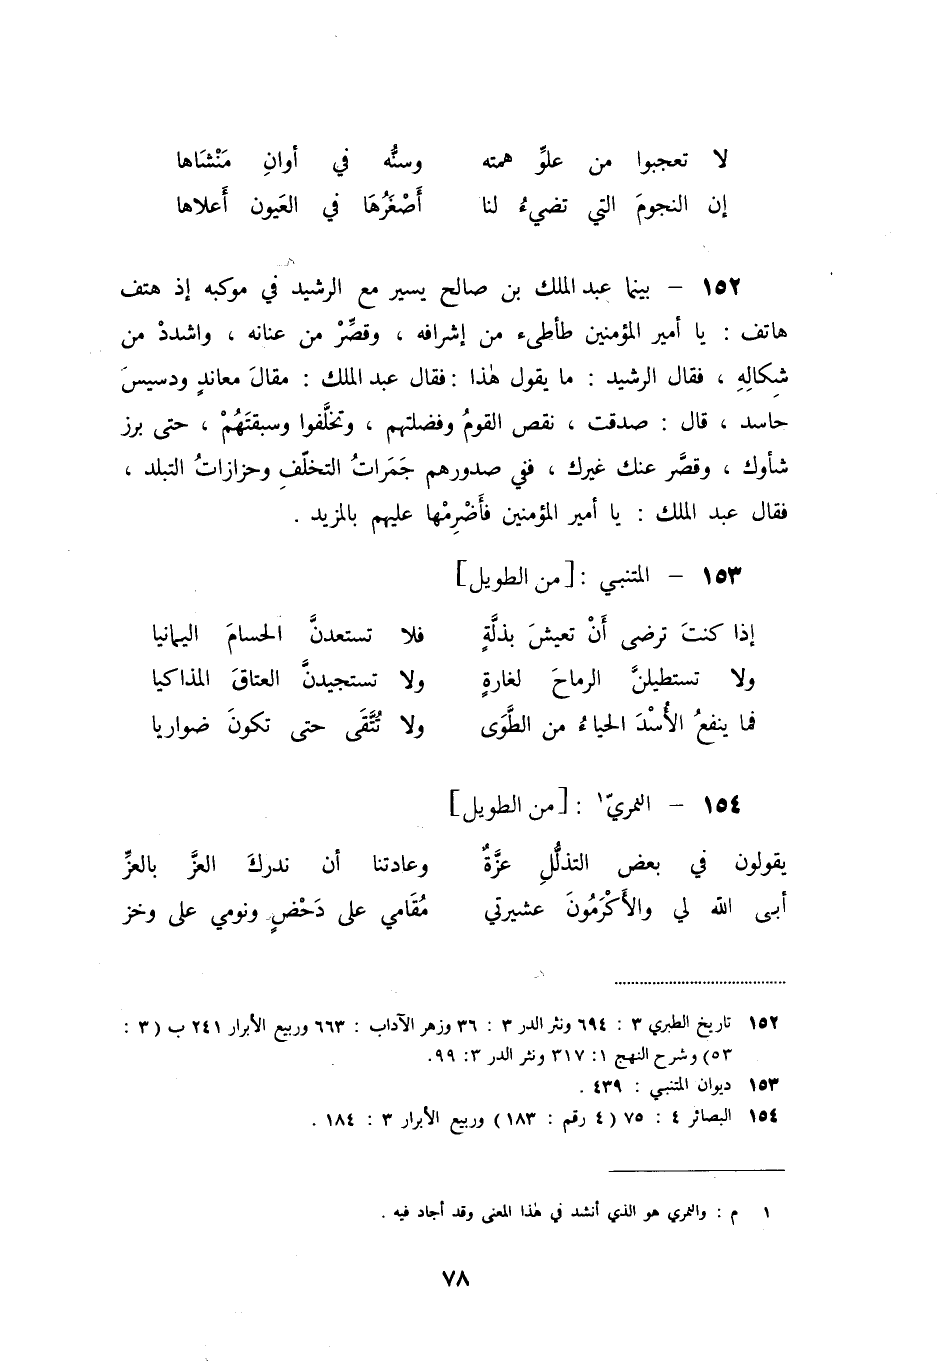 لا تعجبوا من علوِّ همته وسنُّه في أوانِ مَنْشَاها
إن النجومَ التي تضيءُ لنا أَصْغَرُهَا في العَيون أَعلاها
١٥٢ - بينما عبد الملك بن صالح يسير مع الرشيد في موكبه إذ هتف
هاتف : يا أمير المؤمنين طأطىء من إشرافه ، وقصِّرْ من عنانه ، واشددْ من
شكالِهِ ، فقال الرشيد : ما يقول هٰذا : فقال عبد الملك : مقالَ معاندٍ ودسيسَ
حاسد ، قال : صدقت ، نقص القومُ وفضلتهم ، وتخلَّفوا وسبقتَهُمْ ، حتى برز
شأوك ، وقصَّر عنك غيرك ، ففي صدورهم جَمَراتُ التخلّفِ وحزازاتُ التبلد ،
فقال عبد الملك : يا أمير المؤمنين فأَضْرِمْها عليهم بالمزيد .
١٥٣ - المتنبي : [من الطويل]
إذا كنتَ ترضى أَنْ تعيشَ بذلَّةٍ فلا تستعدنَّ الحسامَ اليمانيا
ولا تستطيلنَّ الرماحَ لغارةٍ ولا تستجيدنَّ العتاقَ المذاكيا
فما ينفعُ الأُسْدَ الحياءُ من الطَّوَى ولا تُتَّقَى حتى تكونَ ضواريا
١٥٤ - النمريّ١ : [من الطويل]
يقولون في بعض التذلُّلِ عزَّةٌ وعادتنا أن ندركَ العزَّ بالعزِّ
أبى الله لي والأَكْرَمُونَ عشيرتي مُقَامي على دَحْضٍ ونومي على وخز
١٥٢ تاريخ الطبري ٣ : ٦٩٤ ونثر الدر ٣ : ٣٦ وزهر الآداب : ٦٦٣ وربيع الأبرار ٢٤١ ب (٣ :
٥٣) وشرح النهج ١: ٣١٧ ونثر الدر ٣: ٩٩.
١٥٣ ديوان المتنبي : ٤٣٩ .
١٥٤ البصائر ٤ : ٧٥ (٤ رقم : ١٨٣) وربيع الأبرار ٣ : ١٨٤ .
١ م : والنمري هو الذي أنشد في هٰذا المعنى وقد أجاد فيه .
٧٨